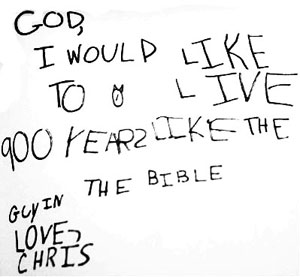 GOD,
I WOULD LIKE
TO LIVE
900 YEARS LIKE THE
THE BIBLE
GUY IN
LOVE,
CHRIS